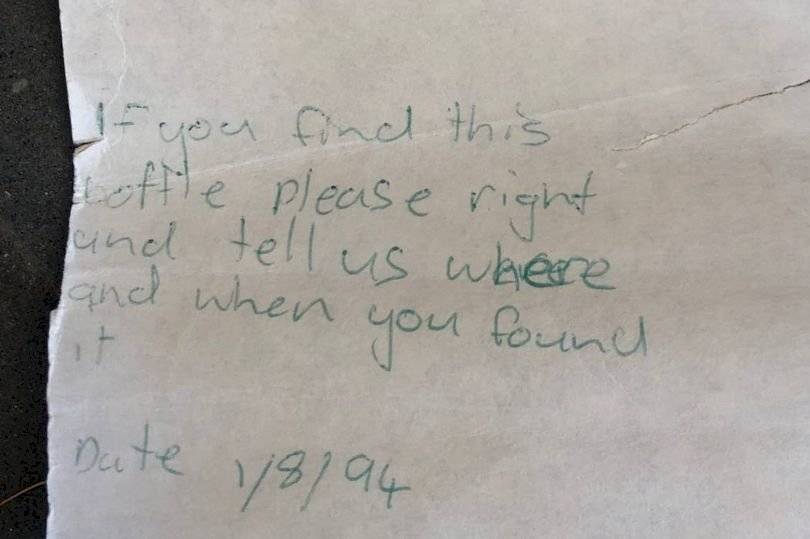 If you find this
bottle please right
and tell us where
and when you found
it
Date 1/8/94